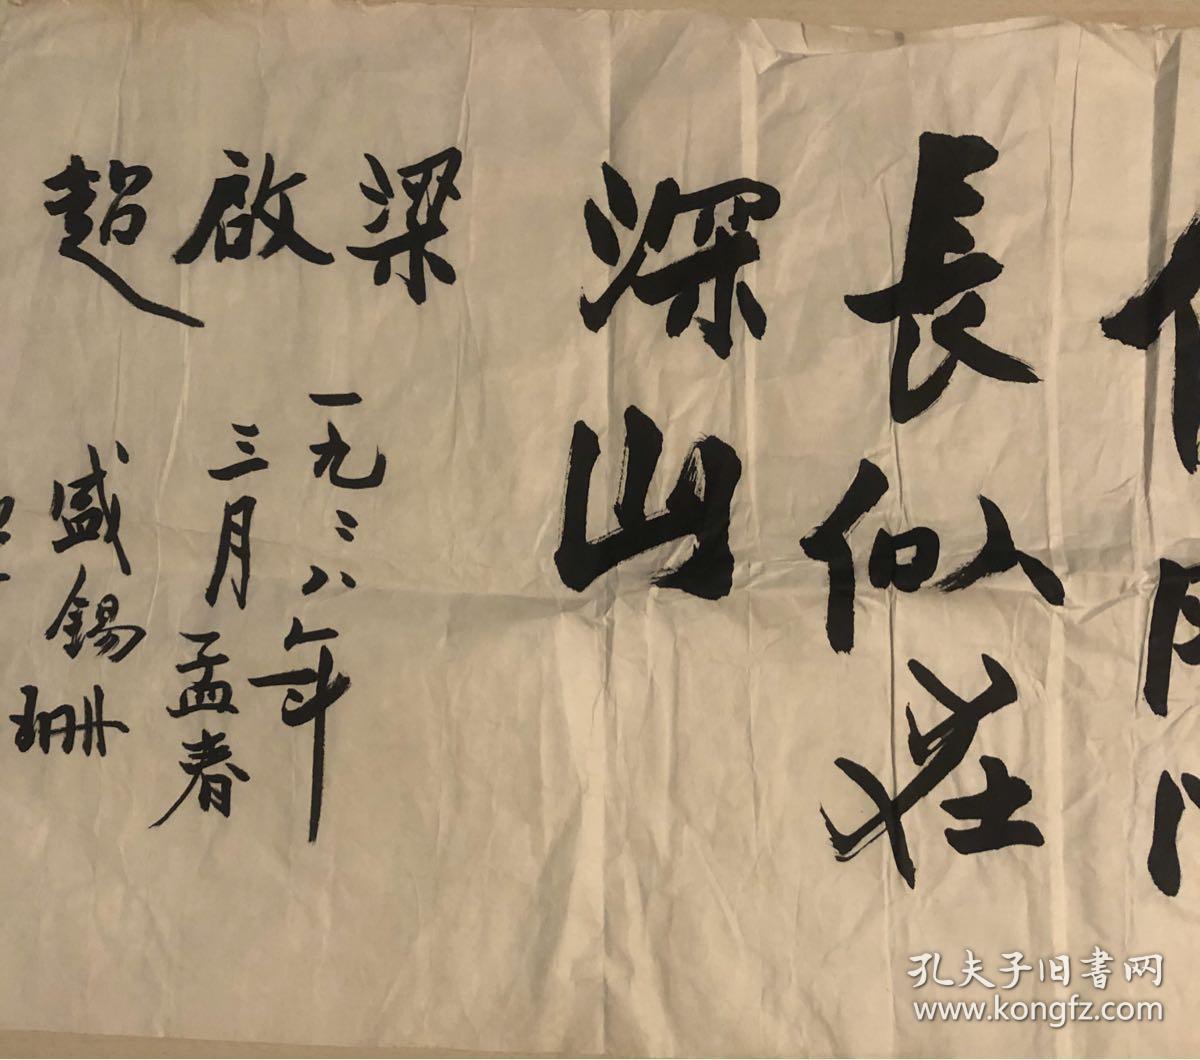 長似莊
深山
梁啟超
一九三八年
三月孟春
盛錫珊
孔夫子旧書网
www.kongfz.com